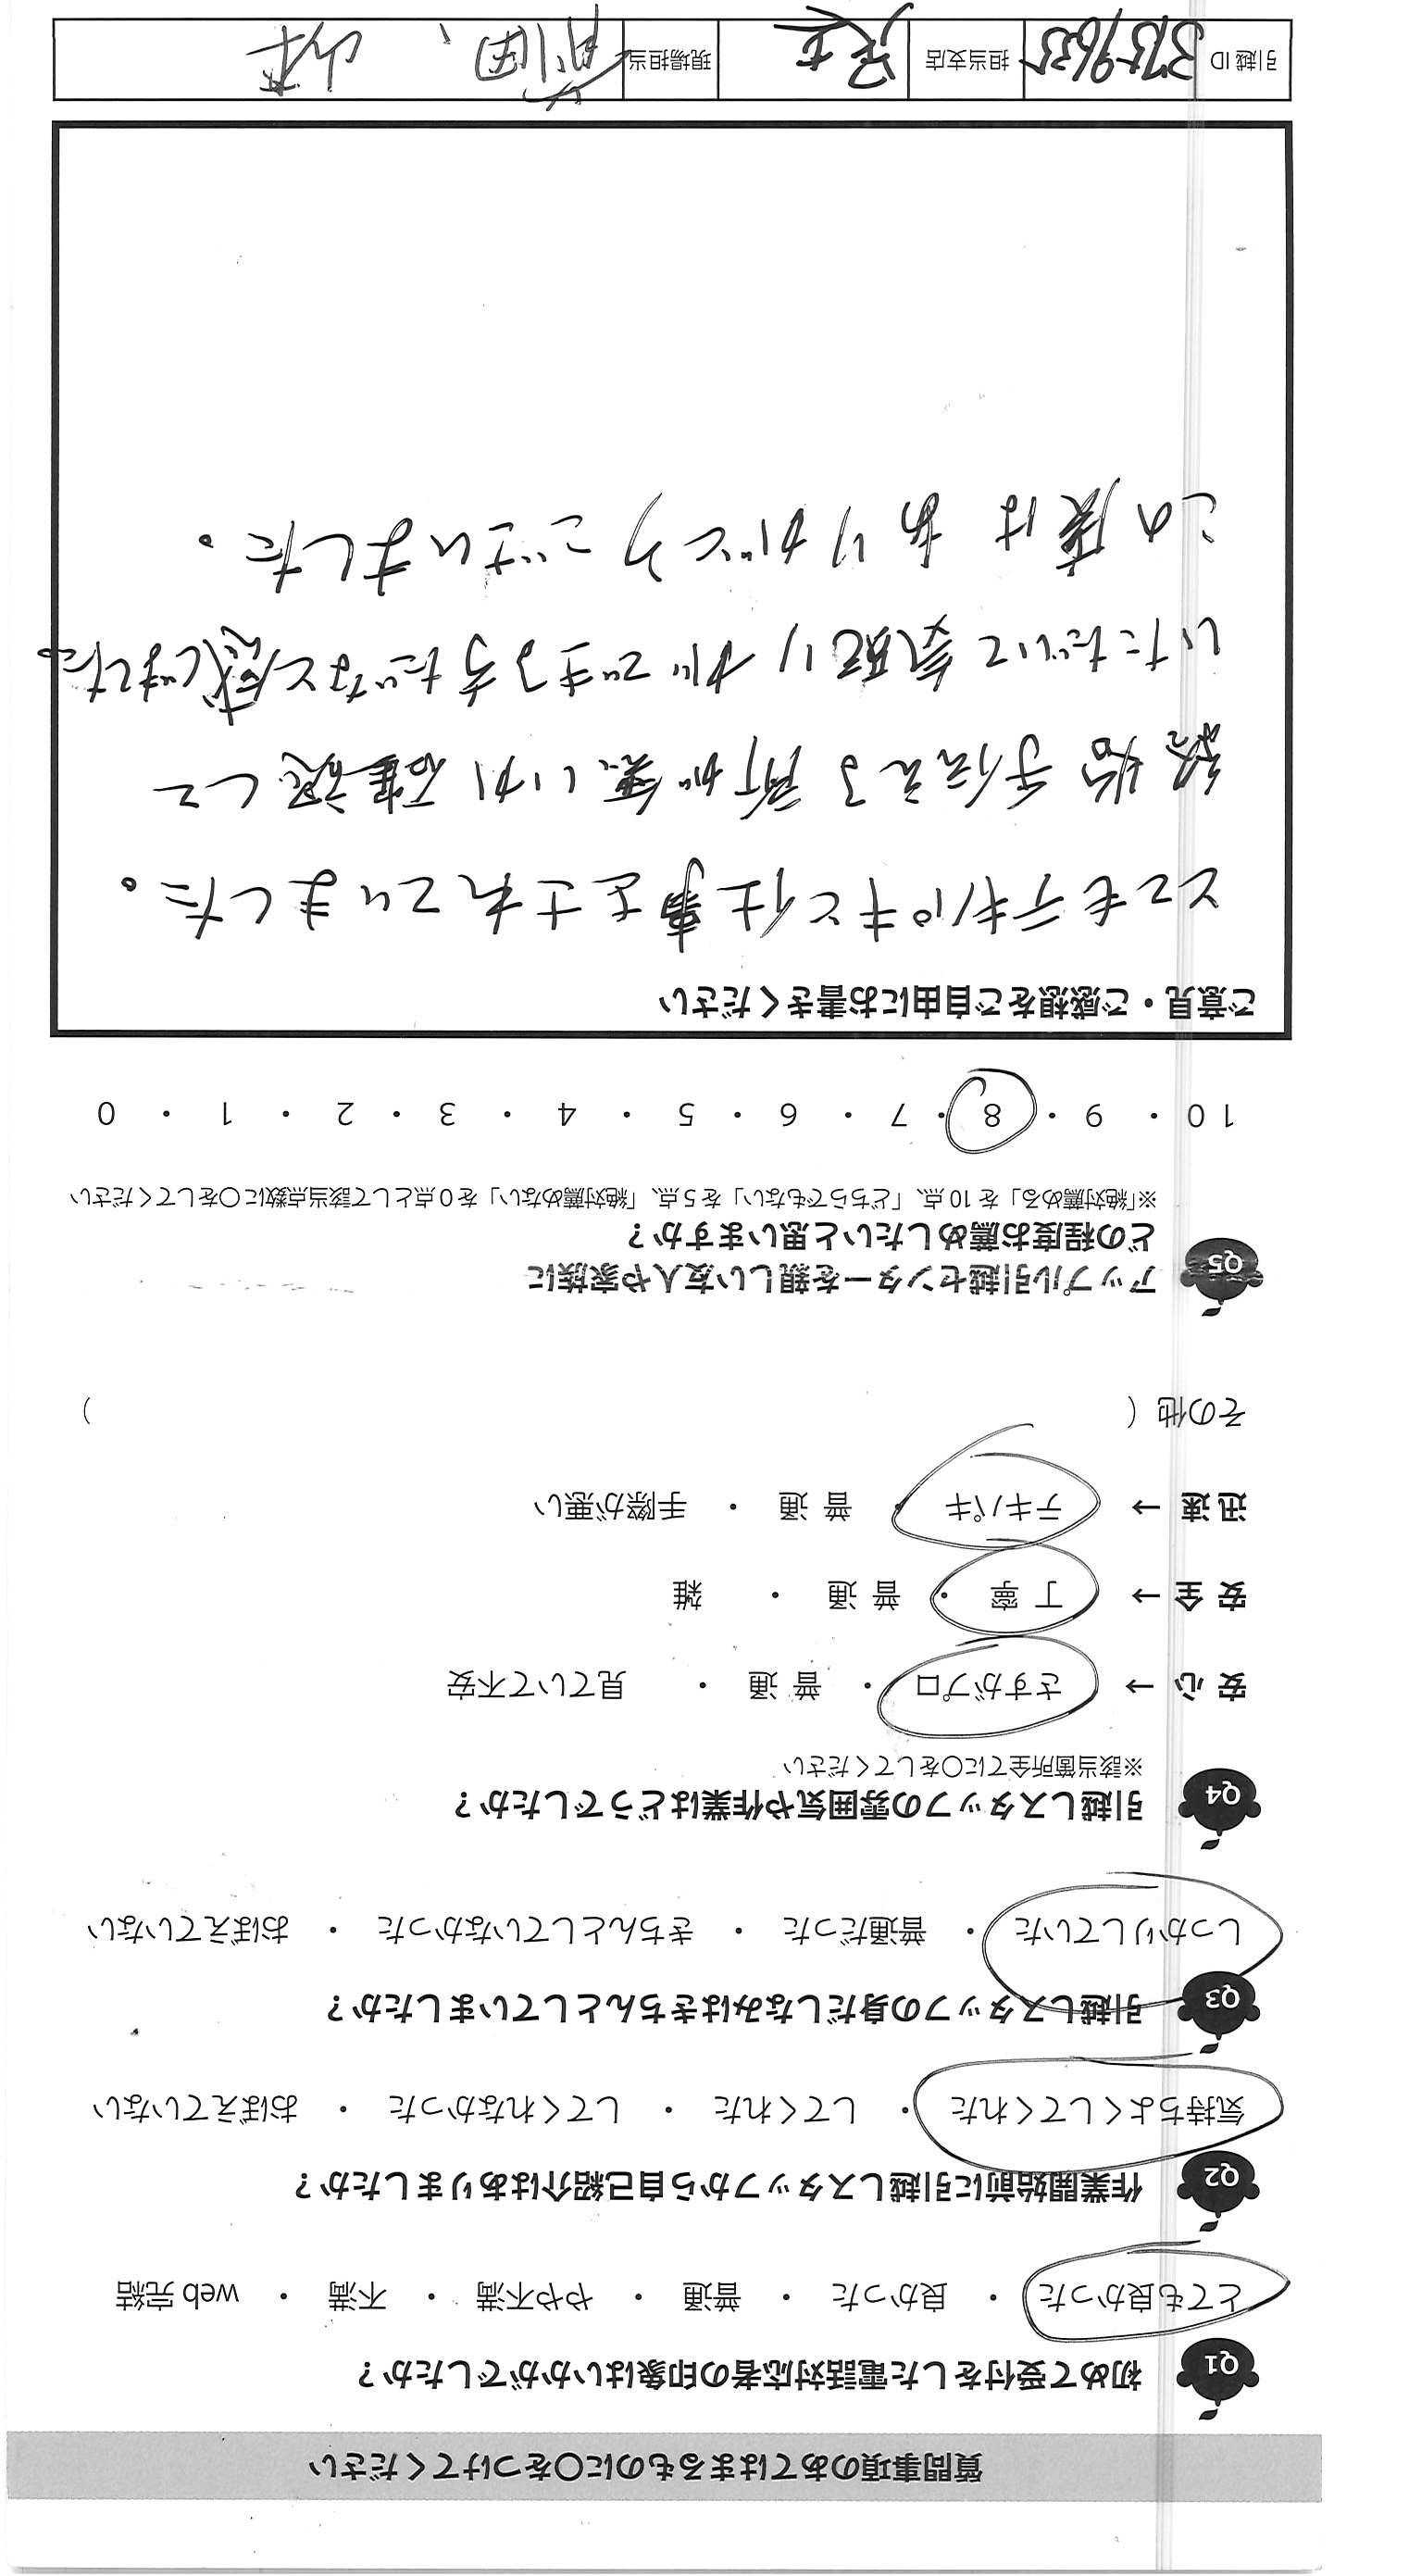 質問事項のあてはまるものに○をつけてください
Q1 初めて受付をした電話対応者の印象はいかがでしたか？
とても良かった ・ 良かった ・ 普通 ・ やや不満 ・ 不満 ・ web 完結
Q2 作業開始前に引越しスタッフから自己紹介はありましたか？
気持ちよくしてくれた ・ してくれた ・ してくれなかった ・ おぼえていない
Q3 引越しスタッフの身だしなみはきちんとしていましたか？
しっかりしていた ・ 普通だった ・ きちんとしていなかった ・ おぼえていない
Q4 引越しスタッフの雰囲気や作業はどうでしたか？
※該当箇所全てに○をしてください
安心 → さすがプロ ・ 普通 ・ 見ていて不安
安全 → 丁寧 ・ 普通 ・ 雑
迅速 → テキパキ ・ 普通 ・ 手際が悪い
その他（ ）
Q5 アップル引越センターを親しい友人や家族に
どの程度お薦めしたいと思いますか？
※「絶対薦める」を 10 点、「どちらでもない」を 5 点、「絶対薦めない」を 0 点として該当点数に○をしてください
10 ・ 9 ・ 8 ・ 7 ・ 6 ・ 5 ・ 4 ・ 3 ・ 2 ・ 1 ・ 0
ご意見・ご感想をご自由にお書きください
とてもテキパキと仕事をされていました。
終始手伝える所が無いか確認して
いただいて気配りができる方だなと感じました。
この度はありがとうございました。
引越 ID 担当支店 足立 現場担当 前田、山本